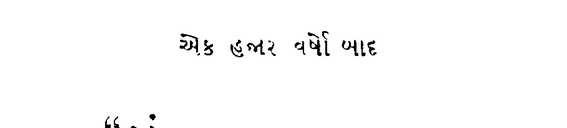 એક હજાર વર્ષો બાદ